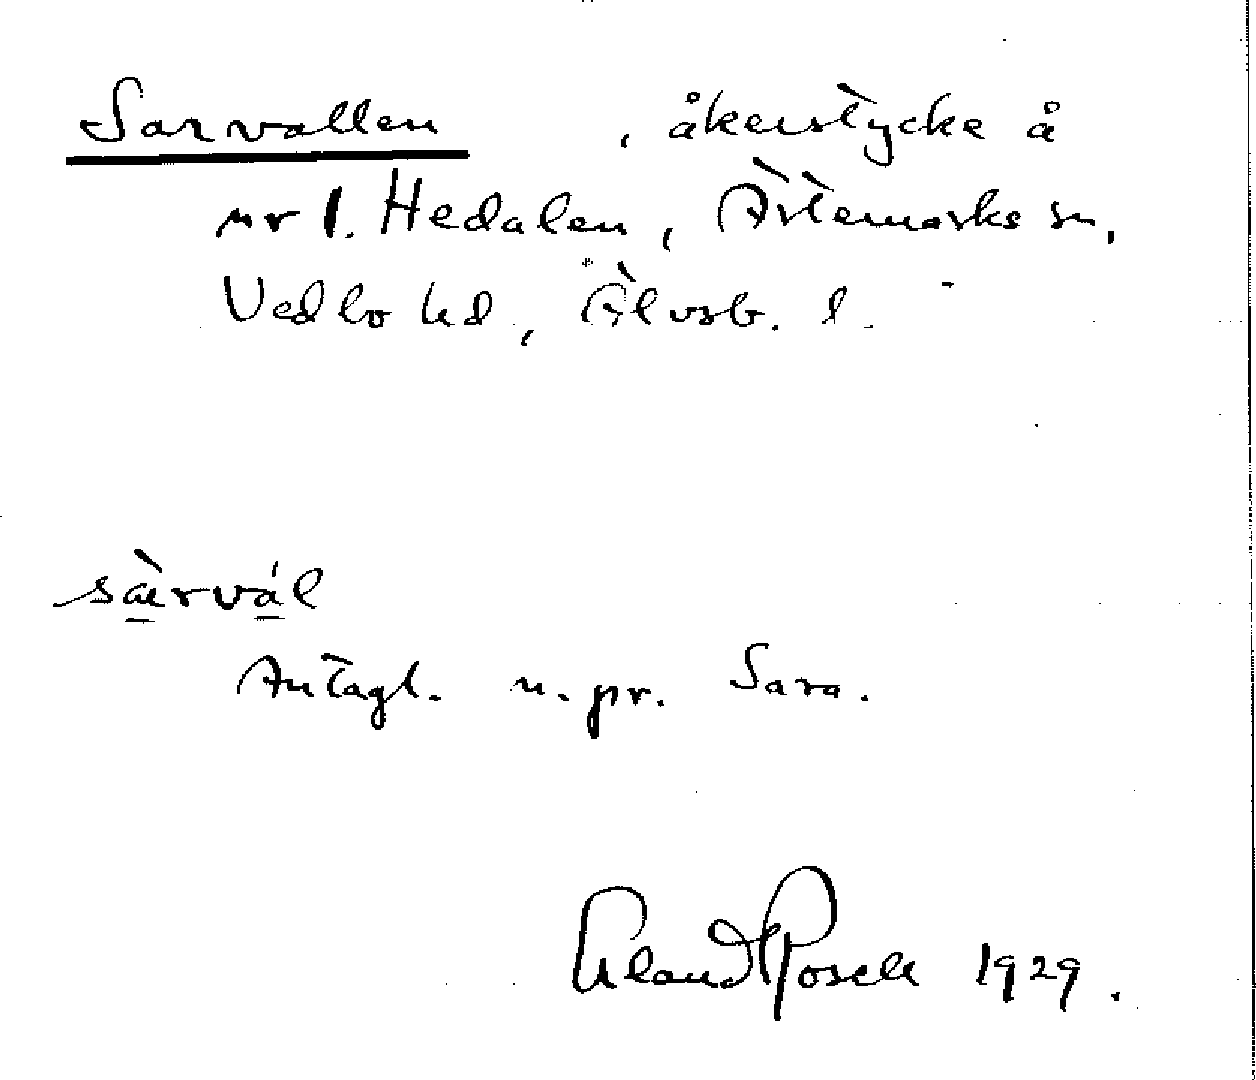 Sarvallen , åkerstycke å
nr 1. Hedalen, Ärtemarks sn,
Vedbo hd, Älvsb. l.
sàrvál
Antagl. n. pr. Sara.
1929.